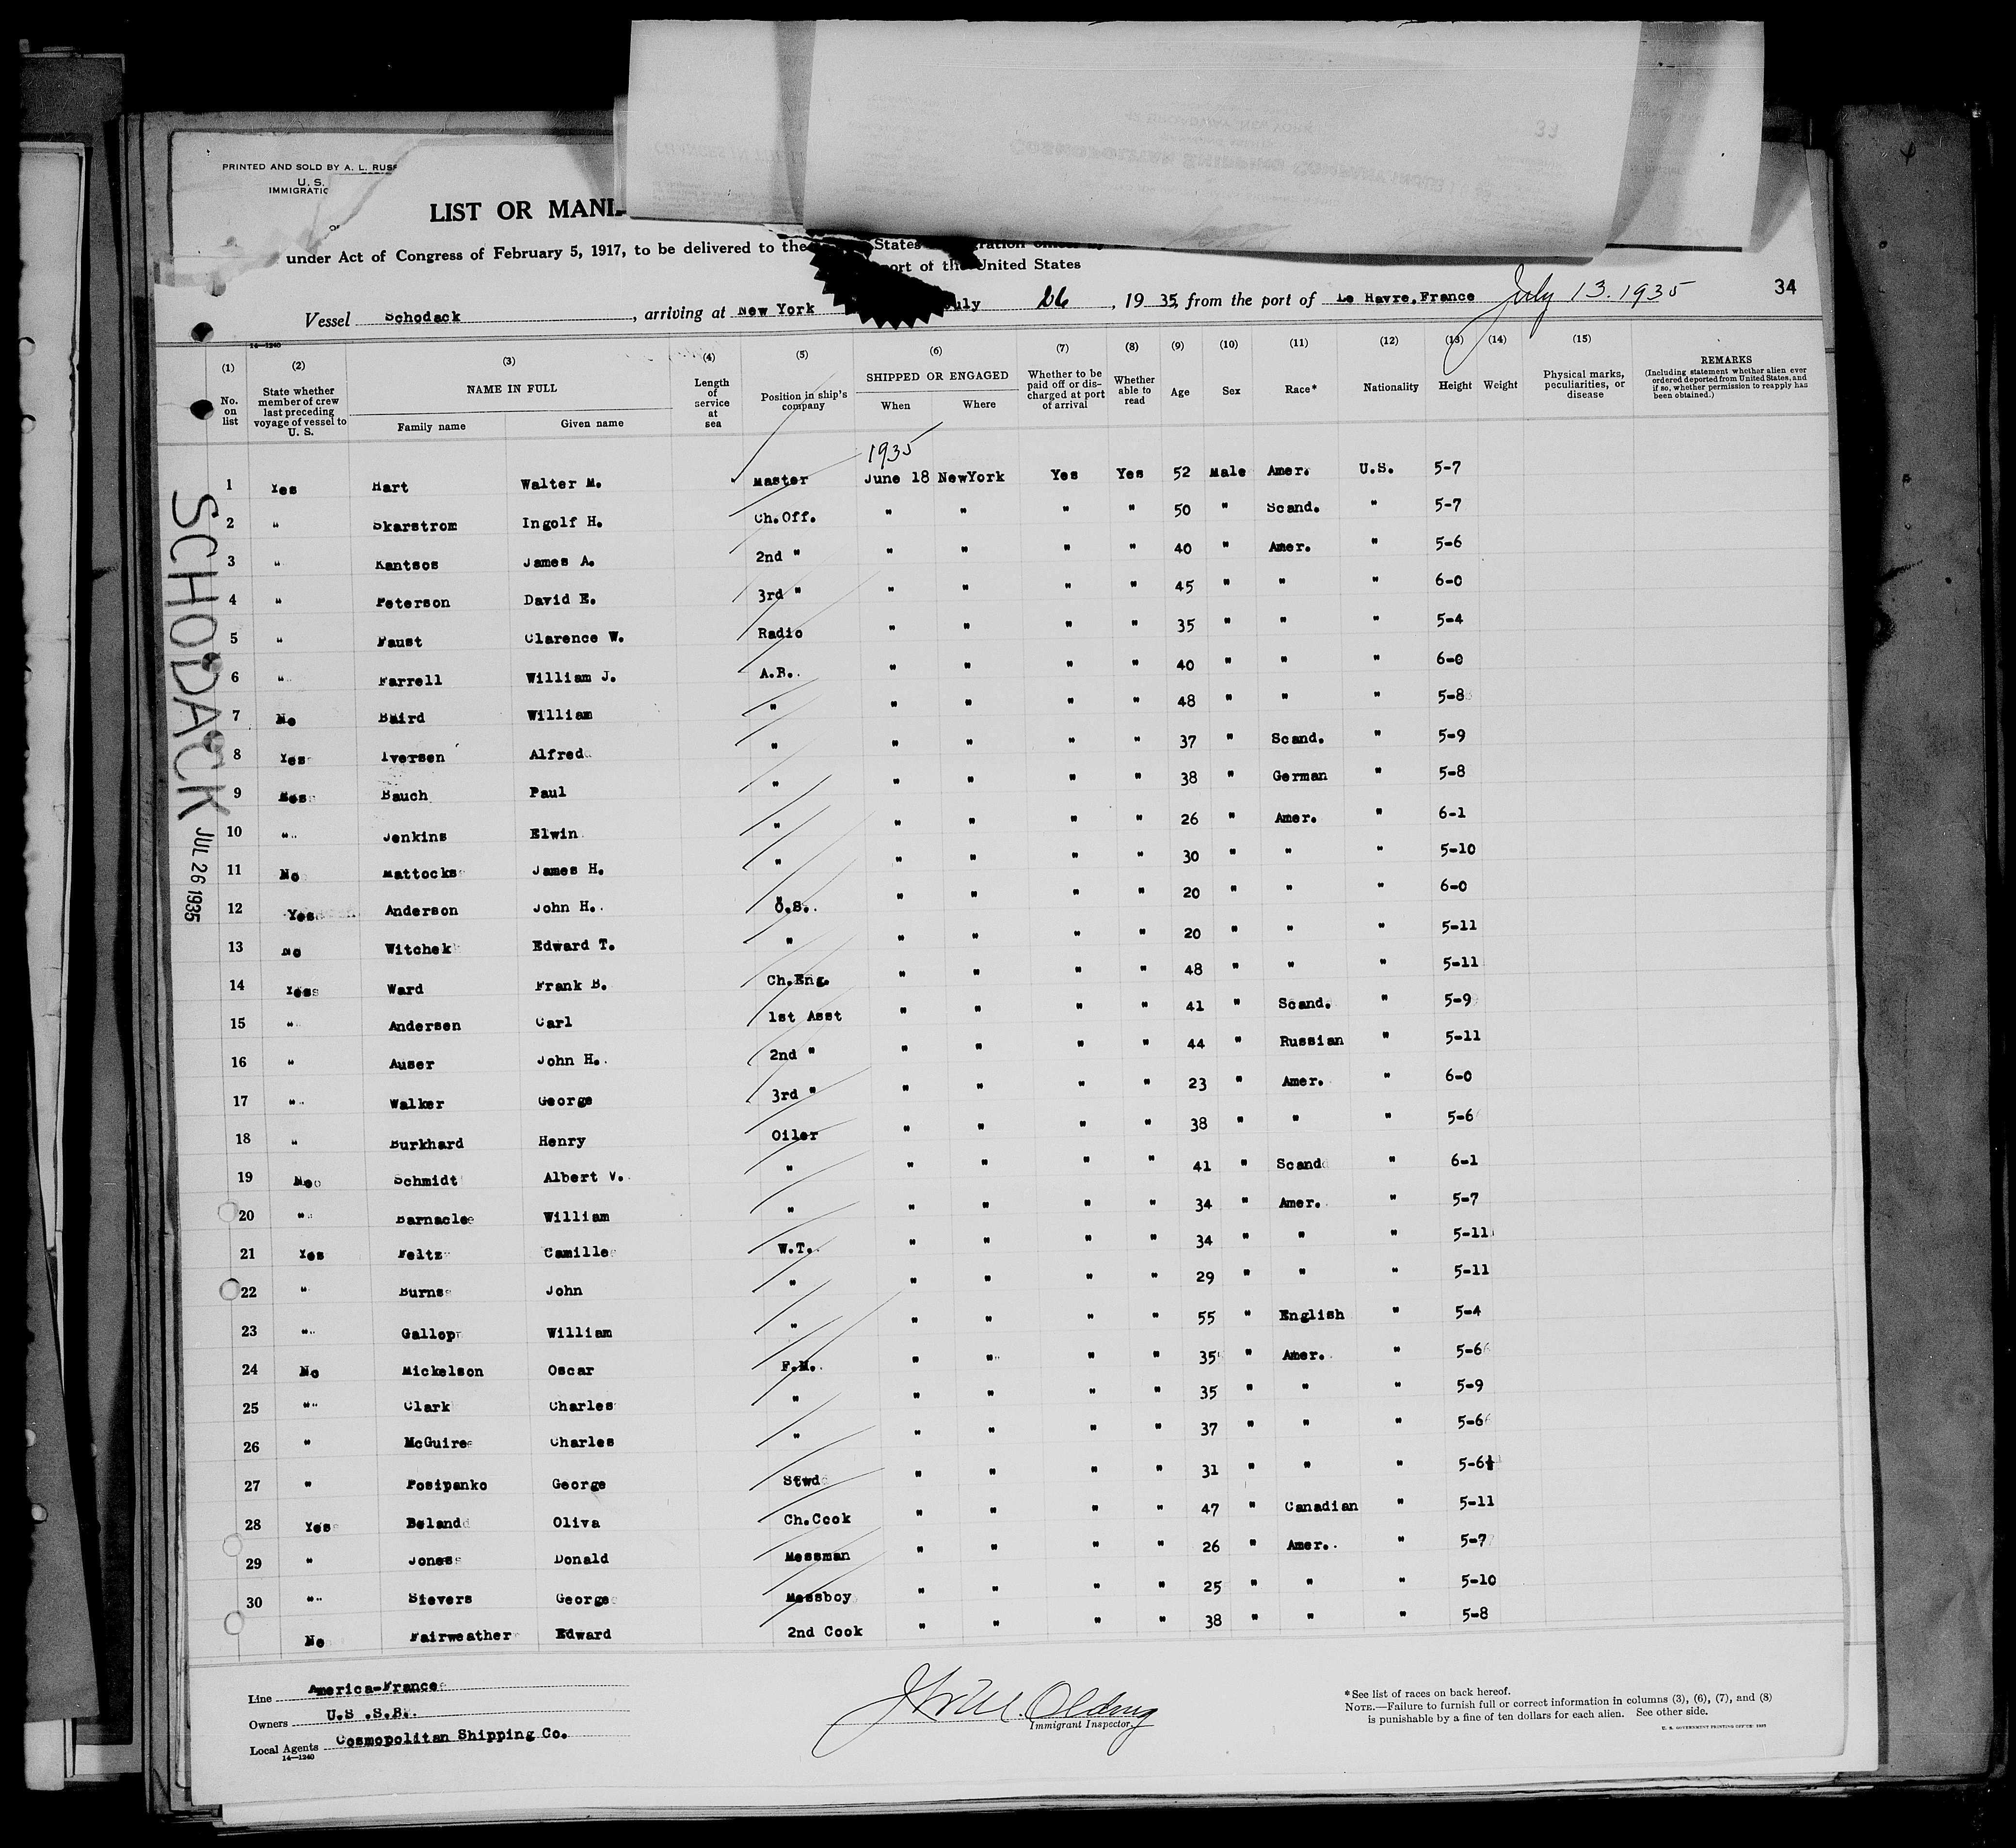 PRINTED AND SOLD BY A. L. RUSS
U. S.
IMMIGRATIO
LIST OR MANI
under Act of Congress of February 5, 1917, to be delivered to the States
port of the United States
34
Vessel Schodack, arriving at New York July 26, 1935, from the port of Le Havre, France July 13. 1935
14—1240
(1) (2) (3) (4) (5) (6) (7) (8) (9) (10) (11) (12) (13) (14) (15)
No. on list
State whether member of crew last preceding voyage of vessel to U. S.
NAME IN FULL
Family name Given name
Length of service at sea
Position in ship's company
SHIPPED OR ENGAGED
When Where
Whether to be paid off or discharged at port of arrival
Whether able to read
Age
Sex
Race*
Nationality
Height
Weight
Physical marks, peculiarities, or disease
REMARKS
(Including statement whether alien ever ordered deported from United States, and if so, whether permission to reapply has been obtained.)
1935
1 Yes Hart Walter M. Master June 18 NewYork Yes Yes 52 Male Amer. U.S. 5-7
2 " Skarstrom Ingolf H. Ch.Off. " " " " 50 " Scand. " 5-7
3 " Kantsos James A. 2nd " " " " " 40 " Amer. " 5-6
4 " Peterson David E. 3rd " " " " " 45 " " " 6-0
5 " Faust Clarence W. Radio " " " " 35 " " " 5-4
6 " Farrell William J. A.B. " " " " 40 " " " 6-0
7 No Baird William " " " " " 48 " " " 5-8
8 Yes Iversen Alfred " " " " " 37 " Scand. " 5-9
9 Bauch Paul " " " " " 38 " German " 5-8
10 " Jenkins Elwin " " " " " 26 " Amer. " 6-1
11 No Mattocks James H. " " " " " 30 " " " 5-10
12 Yes Anderson John H. O.S. " " " " 20 " " " 6-0
13 No Witchek Edward T. " " " " " 20 " " " 5-11
14 Yes Ward Frank B. Ch.Eng. " " " " 48 " " " 5-11
15 " Andersen Carl 1st Asst " " " " 41 " Scand. " 5-9
16 " Auser John H. 2nd " " " " " 44 " Russian " 5-11
17 " Walker George 3rd " " " " " 23 " Amer. " 6-0
18 " Burkhard Henry Oiler " " " " 38 " " " 5-6
19 No Schmidt Albert V. " " " " " 41 " Scand " 6-1
20 " Barnacle William " " " " " 34 " Amer. " 5-7
21 Yes Feltz Camille W.T. " " " " 34 " " " 5-11
22 " Burns John " " " " " 29 " " " 5-11
23 " Gallop William " " " " " 55 " English " 5-4
24 No Mickelson Oscar F.M. " " " " 35 " Amer. " 5-6
25 " Clark Charles " " " " " 35 " " " 5-9
26 " McGuire Charles " " " " " 37 " " " 5-6
27 " Posipanko George Stwd " " " " 31 " " " 5-6½
28 Yes Beland Oliva Ch.Cook " " " " 47 " Canadian " 5-11
29 " Jones Donald Messman " " " " 26 " Amer. " 5-7
30 " Sievers George Messboy " " " " 25 " " " 5-10
No Fairweather Edward 2nd Cook " " " " 38 " " " 5-8
SCHODACK JUL 26 1935
Line America-France
Owners U.S .S.B.
Local Agents Cosmopolitan Shipping Co.
14—1240
Immigrant Inspector.
*See list of races on back hereof.
NOTE.—Failure to furnish full or correct information in columns (3), (6), (7), and (8)
is punishable by a fine of ten dollars for each alien. See other side.
U. S. GOVERNMENT PRINTING OFFICE